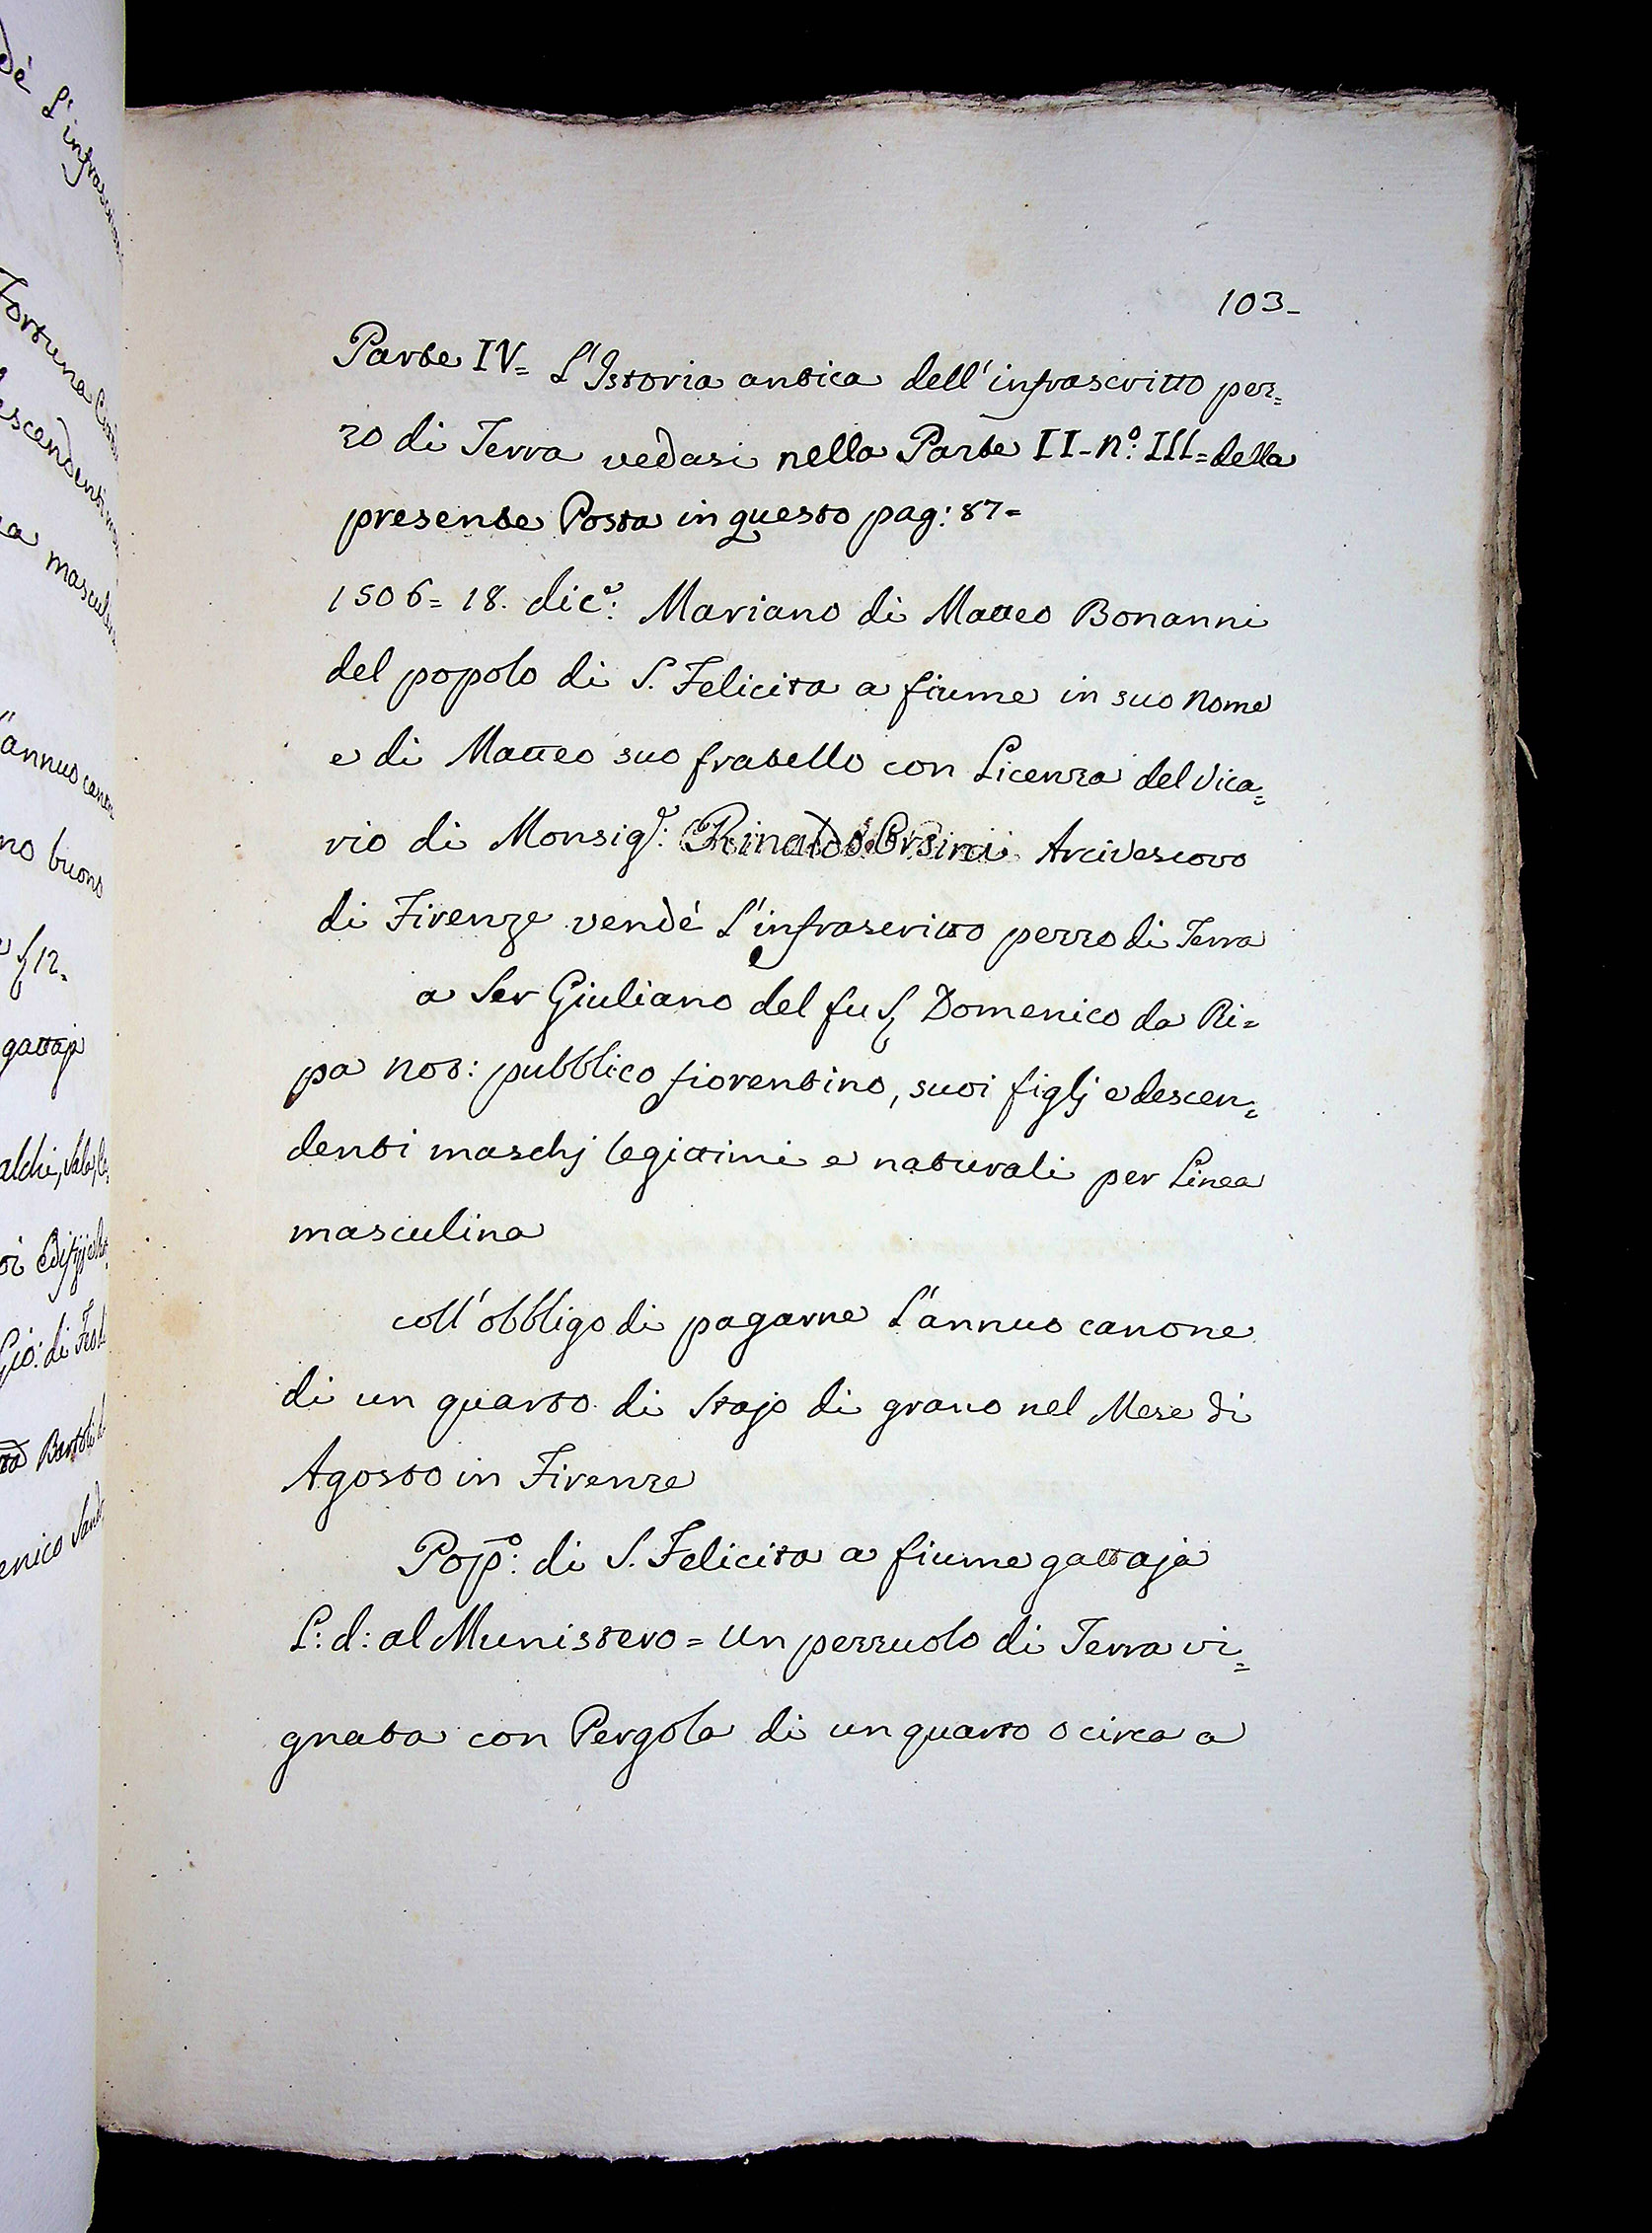 103-
Parte IV= L'Istoria antica dell'infrascritto pez=
zo di Terra vedasi nella Parte II-n.º III=della
presente Posta in questo pag: 87=
1506= 18. dic.e: Mariano di Matteo Bonanni
del popolo di S. Felicita a fiume in suo nome
e di Matteo suo fratello con Licenza del Vica=
rio di Monsig.e: Rinaldo Orsini Arcivescovo
di Firenze vendé l'infrascritto pezzo di Terra
a Ser Giuliano del fu S. Domenico da Ri=
pa not: pubblico fiorentino, suoi figlj e descen=
denti maschj legittimi e naturali per Linea
masculina
coll'obbligo di pagarne l'annuo canone
di un quarto di Stajo di grano nel Mese di
Agosto in Firenze
Pop.º: di S. Felicita a fiume gattaja
L: d: al Munistero= Un pezzuolo di Terra vi=
gnata con Pergola di un quarto o circa a